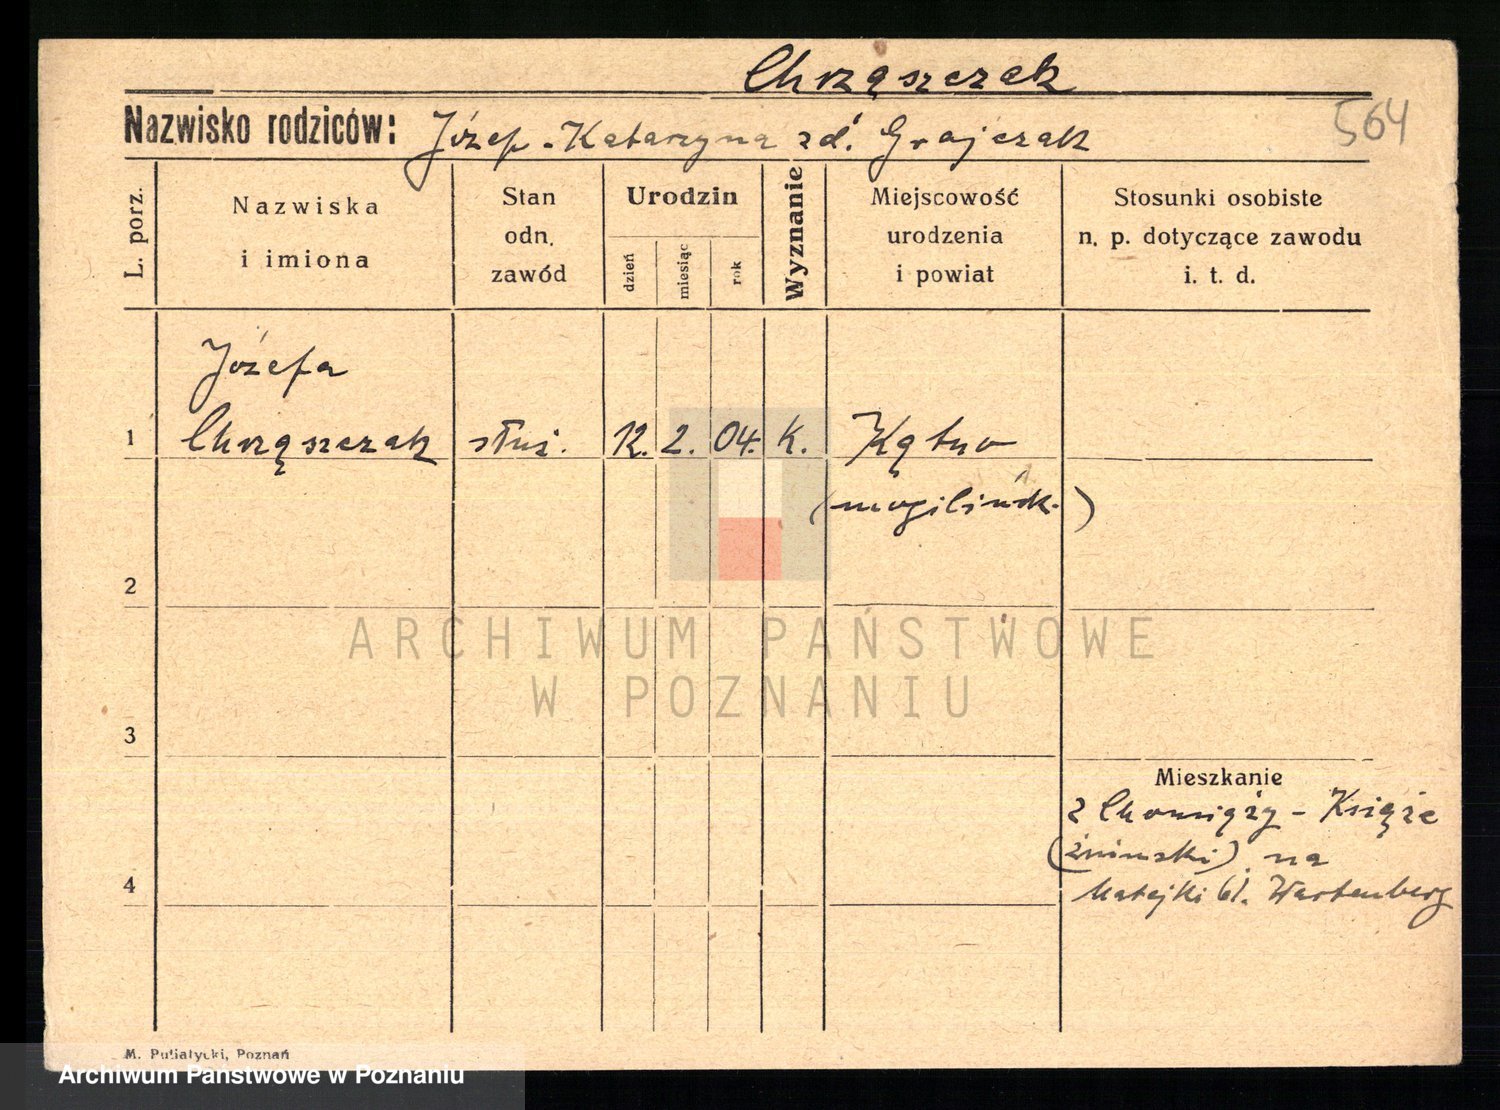 Chrząszczak
564
Nazwisko rodziców: Józef - Katarzyna zd. Grajczak
L. porz.
Nazwiska
i imiona
Stan
odn.
zawód
Urodzin
dzień
miesiąc
rok
Wyznanie
Miejscowość
urodzenia
i powiat
Stosunki osobiste
n. p. dotyczące zawodu
i. t. d.
Józefa
1 Chrząszczak służ. 12. 2. 04. K. Kątno
(mogilińsk.)
2
ARCHIWUM PAŃSTWOWE
W POZNANIU
3
Mieszkanie
z Chomiąży - Księże
(żniński) na
4
Matejki 61. Wartenberg
M. Putiatycki, Poznań
Archiwum Państwowe w Poznaniu